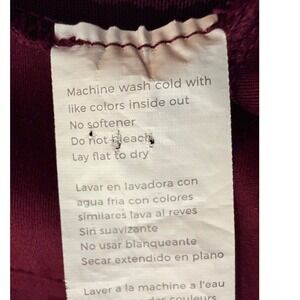 Machine wash cold with
like colors inside out
No softener
Do not bleach
Lay flat to dry
Lavar en lavadora con
agua fria con colores
similares lava al reves
Sin suavizante
No usar blanqueante
Secar extendido en plano
Laver a la machine a l'eau
couleurs